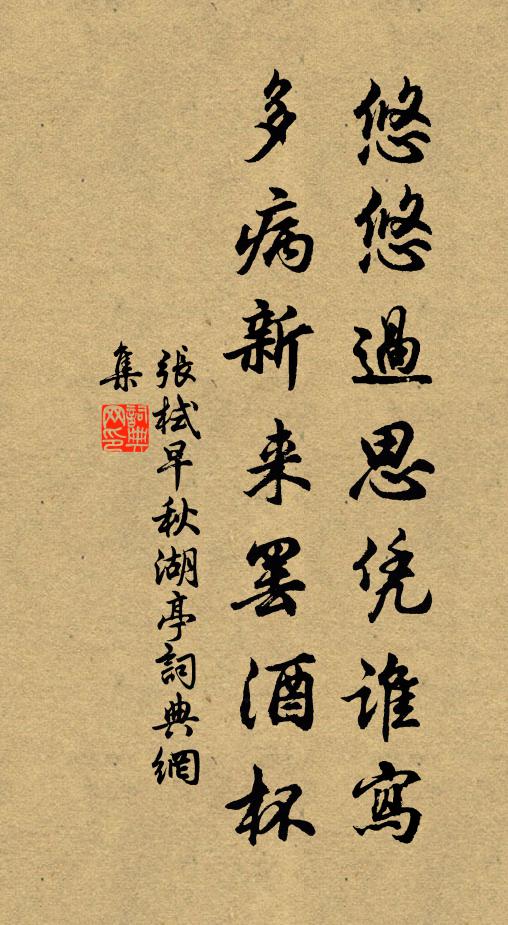 悠悠過思凭谁寫
多病新来罢酒杯
張栻早秋湖亭詞典網
集
詞典网印